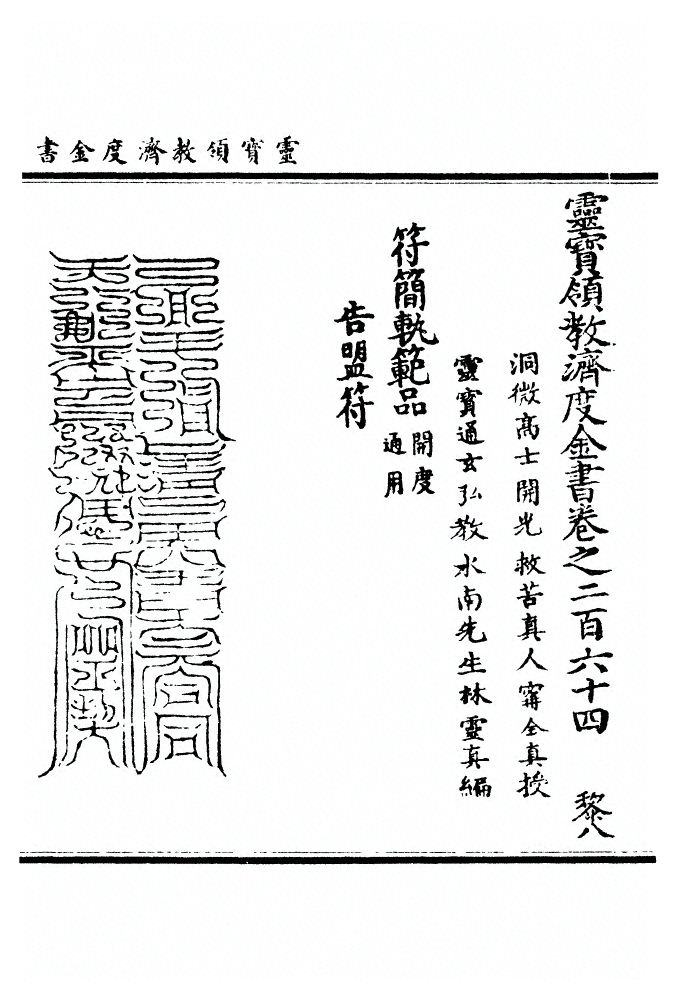 靈寶領教濟度金書
靈寶領教濟度金書卷之二百六十四 黎八
洞微高士開光救苦真人甯全真授
靈寶通玄弘教水南先生林靈真編
符簡軌範品 開度通用
告盟符